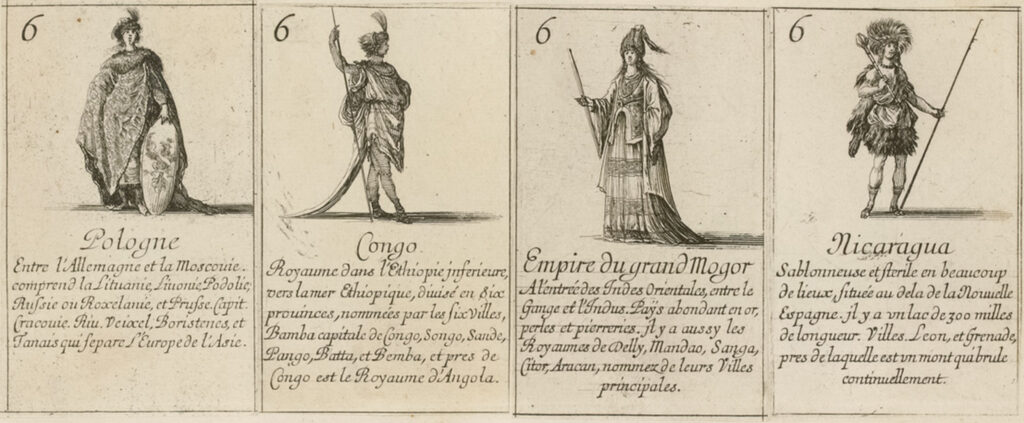 6
Pologne
Entre l'Allemagne et la Moscouie.
comprend la Lituanie, Liuonie, Podolie,
Russie ou Roxelanie, et Prusse. Capit.
Cracouie. Riu. Veixel, Boristenes, et
Tanais qui separe l'Europe de l'Asie.
6
Congo
Royaume dans l'Ethiopie jnferieure,
vers la mer Ethiopique, diuisé en six
prouinces, nommées par les six Villes,
Bamba capitale de Congo, Songo, Sande,
Pango, Batta, et Pemba, et pres de
Congo est le Royaume d'Angola.
6
Empire du grand Mogor
A l'entrée des Indes Orientales, entre le
Gange et l'Indus. Païs abondant en or,
perles et pierreries. jl y a aussy les
Royaumes de Delly, Mandao, Sanga,
Citor, Aracan, nommez de leurs Villes
principales.
6
Nicaragua
Sablonneuse et sterile en beaucoup
de lieux, située au dela de la Nouuelle
Espagne. jl y a vn lac de 300 milles
de longueur. Villes. Leon, et Grenade,
pres de laquelle est vn mont qui brule
continuellement.